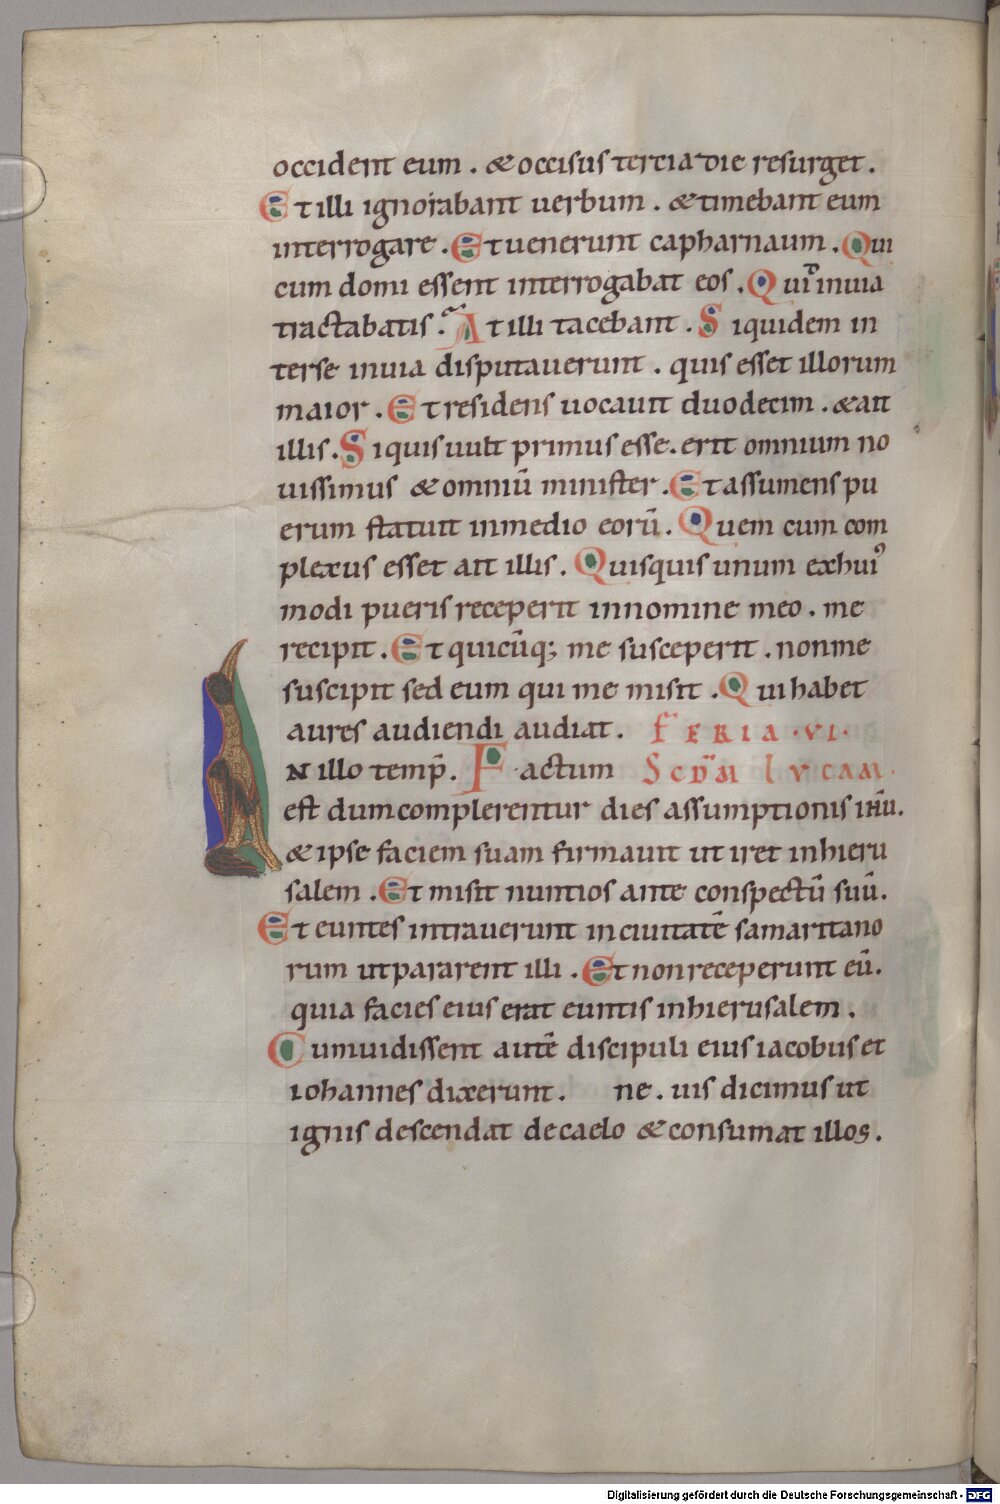 occident eum . & occisus tertia die resurget .
Et illi ignorabant uerbum . & timebant eum
interrogare . Et uenerunt capharnaum . Qui
cum domi essent interrogabat eos . Quĩd inuia
tractabatis . At illi tacebant . Siquidem in
terse inuia disputauerunt . quis esset illorum
maior . Et residens uocauit duodecim . & ait
illis . Siquis uult primus esse . erit omnium no
uissimus & omniũ minister . Et assumens pu
erum statuit inmedio eorũ . Quem cum com
plexus esset ait illis . Quisquis unum exhuiꝰ
modi pueris receperit innomine meo . me
recipit . Et quicũq; me susceperit . nonme
suscipit sed eum qui me misit . Qui habet
aures audiendi audiat . FERIA · VI ·
IN illo temp̄ . Factum SCDM LVCAM .
est dumcomplerentur dies assumptionis ihũ .
& ipse faciem suam firmauit ut iret inhieru
salem . Et misit nuntios ante conspectũ suũ .
Et euntes intrauerunt inciuitatẽ samaritano
rum utpararent illi . Et nonreceperunt eũ .
quia facies eius erat euntis inhierusalem .
Cumuidissent autẽ discipuli eius iacobus et
iohannes dixerunt . ne . uis dicimus ut
ignis descendat decaelo & consumat illos .
Digitalisierung gefördert durch die Deutsche Forschungsgemeinschaft - DFG